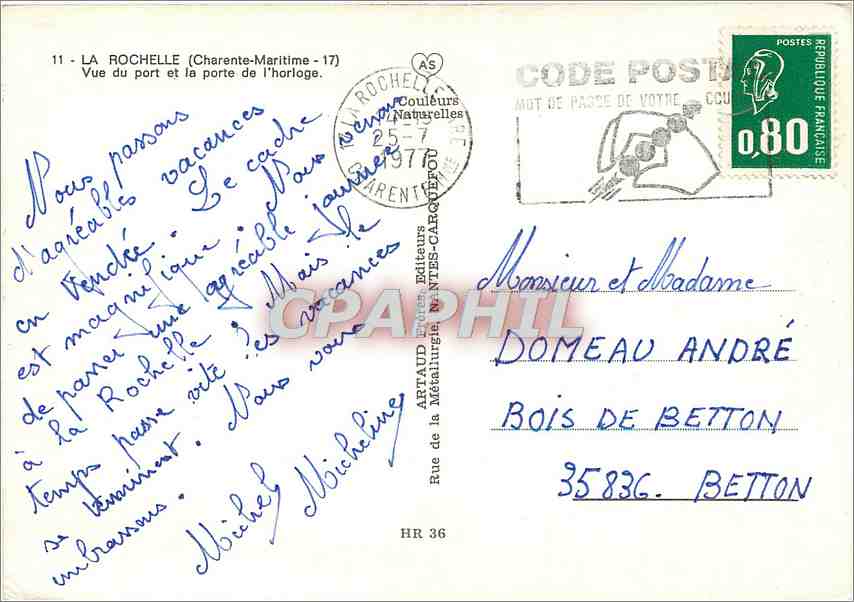 11 - LA ROCHELLE (Charente-Maritime - 17)
Vue du port et la porte de l'horloge.
Nous passons
d'agréables vacances
en Vendée. Le cadre
est magnifique. Nous venons
de passer une agréable journée
à la Rochelle. Mais le
temps passe vite les vacances
se terminent. Nous vous
embrassons.
Michel Micheline
AS
Couleurs
Naturelles
17 LA ROCHELLE GARE
25-7
1977
CHARENTE MME
CODE POSTAL
MOT DE PASSE DE VOTRE
POSTES
REPUBLIQUE FRANÇAISE
0,80
ARTAUD Frères, Editeurs
Rue de la Métallurgie, NANTES-CARQUEFOU
Monsieur et Madame
DOMEAU ANDRÉ
BOIS DE BETTON
35836. BETTON
HR 36
CPAPHIL